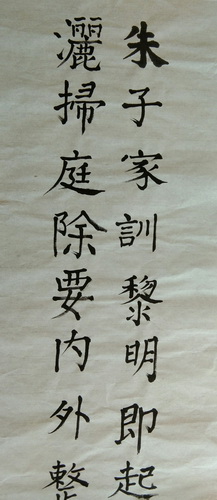 朱子家訓黎明即起
灑掃庭除要内外整